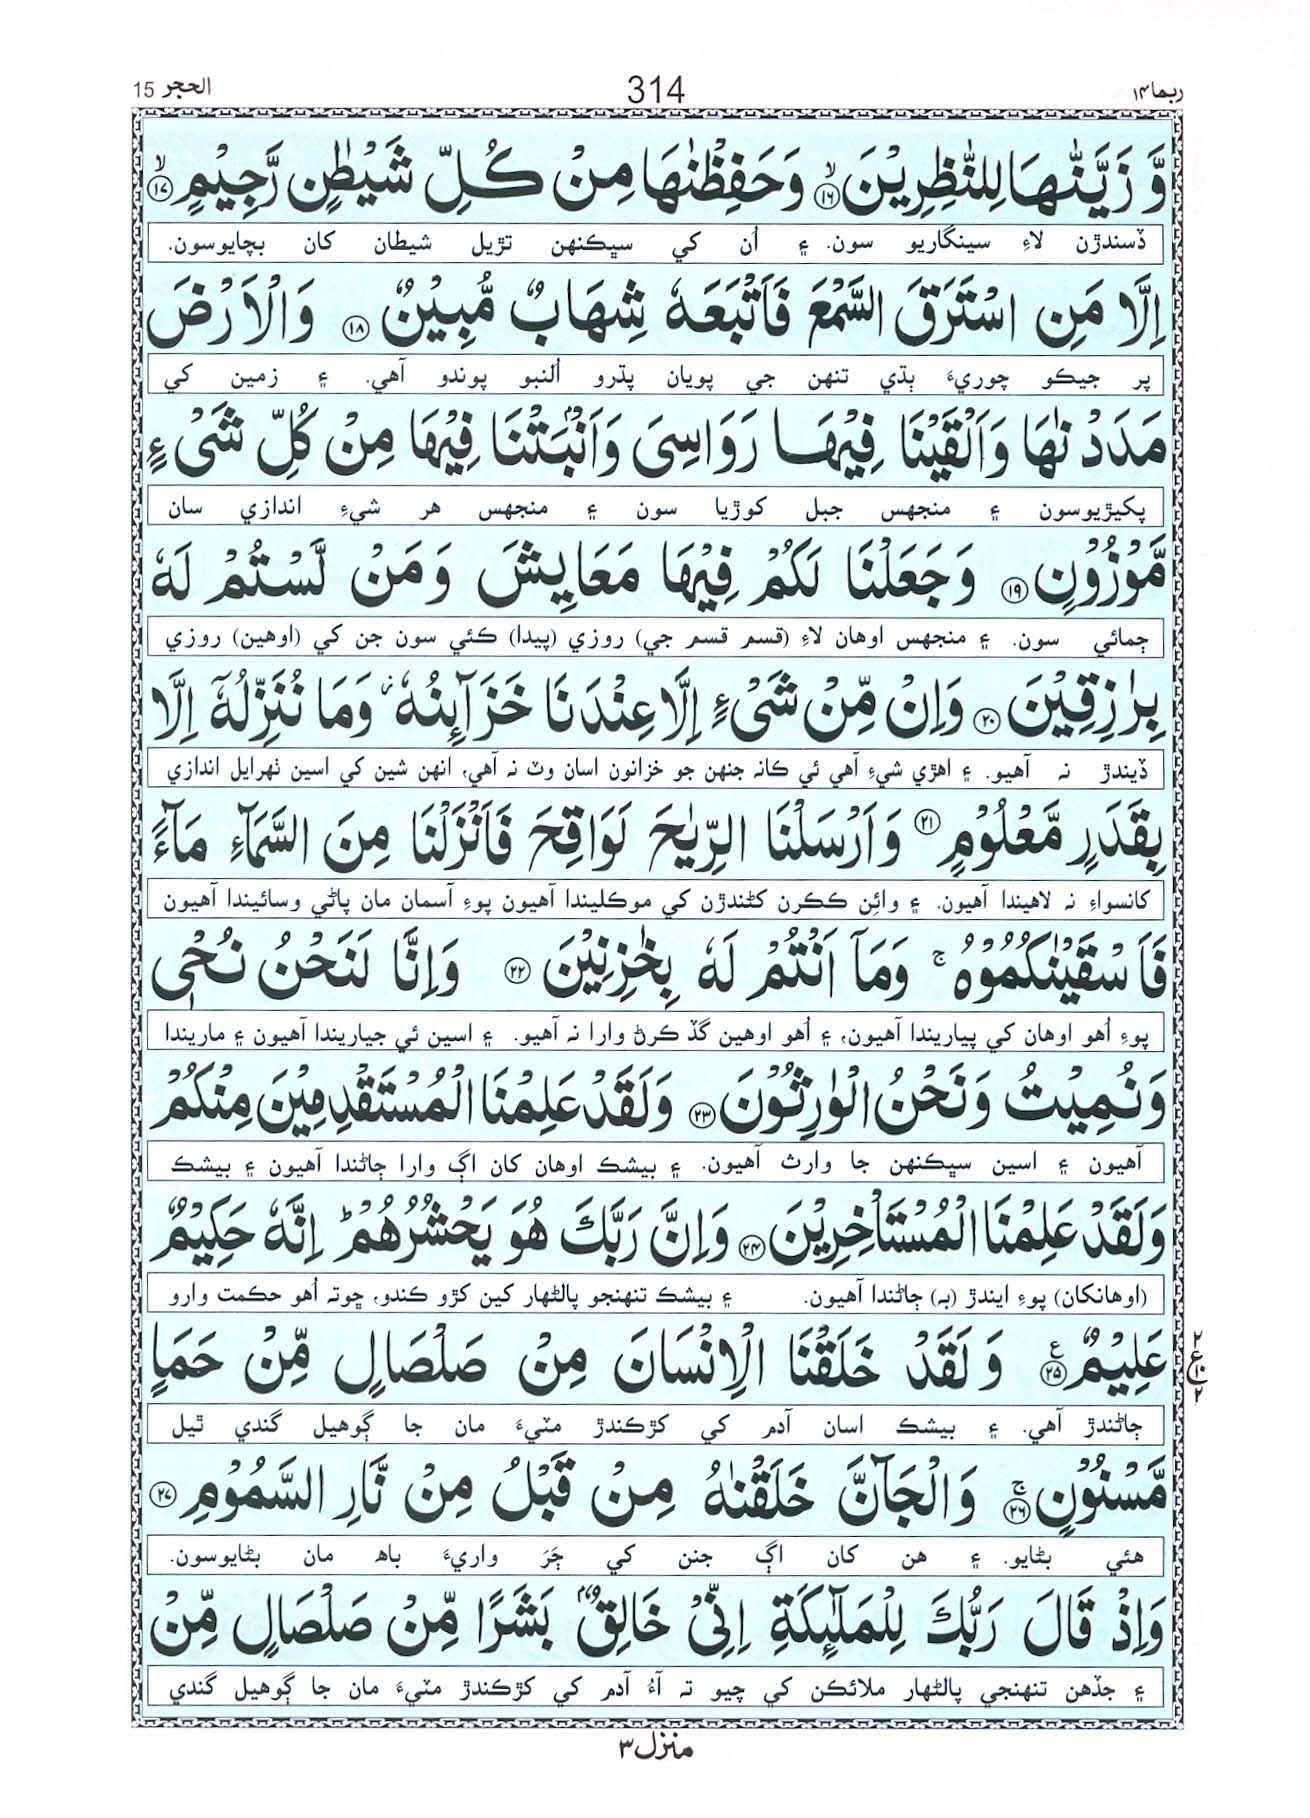 ربما ١٤ 314 الحجر 15
وَّ زَيَّنّٰهَا لِلنّٰظِرِيْنَ ۙ﴿۱۶﴾ وَحَفِظْنٰهَا مِنْ كُلِّ شَيْطٰنٍ رَّجِيْمٍ ۙ﴿۱۷﴾
ڏسندڙن لاءِ سينگاريو سون. ۽ اُن کي سڀڪنهن تڙيل شيطان کان بچايوسون.
اِلَّا مَنِ اسْتَرَقَ السَّمْعَ فَاَتْبَعَهٗ شِهَابٌ مُّبِيْنٌ ﴿۱۸﴾ وَالْاَرْضَ
پر جيڪو چوريءَ ٻڌي تنهن جي پويان پڌرو اُلنبو پوندو آهي. ۽ زمين کي
مَدَدْنٰهَا وَاَلْقَيْنَا فِيْهَا رَوَاسِىَ وَاَنْۢبَتْنَا فِيْهَا مِنْ كُلِّ شَىْءٍ
پکيڙيوسون ۽ منجهس جبل کوڙيا سون ۽ منجهس هر شيءِ اندازي سان
مَّوْزُوْنٍ ﴿۱۹﴾ وَجَعَلْنَا لَكُمْ فِيْهَا مَعَايِشَ وَمَنْ لَّسْتُمْ لَهٗ
ڄمائي سون. ۽ منجهس اوهان لاءِ (قسم قسم جي) روزي (پيدا) ڪئي سون جن کي (اوهين) روزي
بِرٰزِقِيْنَ ﴿۲۰﴾ وَاِنْ مِّنْ شَىْءٍ اِلَّا عِنْدَنَا خَزَآئِنُهٗ ۫ وَمَا نُنَزِّلُهٗٓ اِلَّا
ڏيندڙ نہ آهيو. ۽ اهڙي شيءِ آهي ئي ڪانہ جنهن جو خزانون اسان وٽ نہ آهي، انهن شين کي اسين ٺهرايل اندازي
بِقَدَرٍ مَّعْلُوْمٍ ﴿۲۱﴾ وَاَرْسَلْنَا الرِّيٰحَ لَوَاقِحَ فَاَنْزَلْنَا مِنَ السَّمَآءِ مَآءً
کانسواءِ نہ لاهيندا آهيون. ۽ وائِن ڪڪرن کڻندڙن کي موڪليندا آهيون پوءِ آسمان مان پاڻي وسائيندا آهيون
فَاَسْقَيْنٰكُمُوْهُ ۚ وَمَآ اَنْتُمْ لَهٗ بِخٰزِنِيْنَ ﴿۲۲﴾ وَاِنَّا لَنَحْنُ نُحْىٖ
پوءِ اُهو اوهان کي پياريندا آهيون، ۽ اُهو اوهين گڏ ڪرڻ وارا نہ آهيو. ۽ اسين ئي جياريندا آهيون ۽ ماريندا
وَنُمِيْتُ وَنَحْنُ الْوٰرِثُوْنَ ﴿۲۳﴾ وَلَقَدْ عَلِمْنَا الْمُسْتَقْدِمِيْنَ مِنْكُمْ
آهيون ۽ اسين سڀڪنهن جا وارث آهيون. ۽ بيشڪ اوهان کان اڳ وارا ڄاڻندا آهيون ۽ بيشڪ
وَلَقَدْ عَلِمْنَا الْمُسْتَاْخِرِيْنَ ﴿۲۴﴾ وَاِنَّ رَبَّكَ هُوَ يَحْشُرُهُمْ ؕ اِنَّهٗ حَكِيْمٌ
(اوهانکان) پوءِ ايندڙ (بہ) ڄاڻندا آهيون. ۽ بيشڪ تنهنجو پالڻهار کين کڙو ڪندو، ڇوتہ اُهو حڪمت وارو
عَلِيْمٌ ع﴿۲۵﴾ وَلَقَدْ خَلَقْنَا الْاِنْسَانَ مِنْ صَلْصَالٍ مِّنْ حَمَاٍ
٢ ع ١٠ ٢
ڄاڻندڙ آهي. ۽ بيشڪ اسان آدم کي کڙڪندڙ مٽيءَ مان جا ڳوهيل گندي ٿيل
مَّسْنُوْنٍ ۚ﴿۲۶﴾ وَالْجَآنَّ خَلَقْنٰهُ مِنْ قَبْلُ مِنْ نَّارِ السَّمُوْمِ ﴿۲۷﴾
هئي بڻايو. ۽ هن کان اڳ جنن کي ڄَرَ واريءَ باهہ مان بڻايوسون.
وَاِذْ قَالَ رَبُّكَ لِلْمَلٰٓئِكَةِ اِنِّىْ خَالِقٌۢ بَشَرًا مِّنْ صَلْصَالٍ مِّنْ
۽ جڏهن تنهنجي پالڻهار ملائڪن کي چيو تہ آءٌ آدم کي کڙڪندڙ مٽيءَ مان جا ڳوهيل گندي
منزل ٣